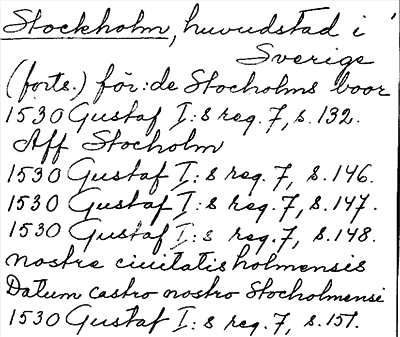 Stockholm, huvudstad i
Sverige
(forts.) för: de Stocholms boor
1530 Gustaf I:s reg. 7, s. 132.
Aff Stocholm
1530 Gustaf I:s reg. 7, s. 146.
1530 Gustaf I:s reg. 7, s. 147.
1530 Gustaf I:s reg. 7, s. 148.
nostre ciuitatis holmensis
Datum castro nostro Stocholmensi
1530 Gustaf I:s reg. 7, s. 151.